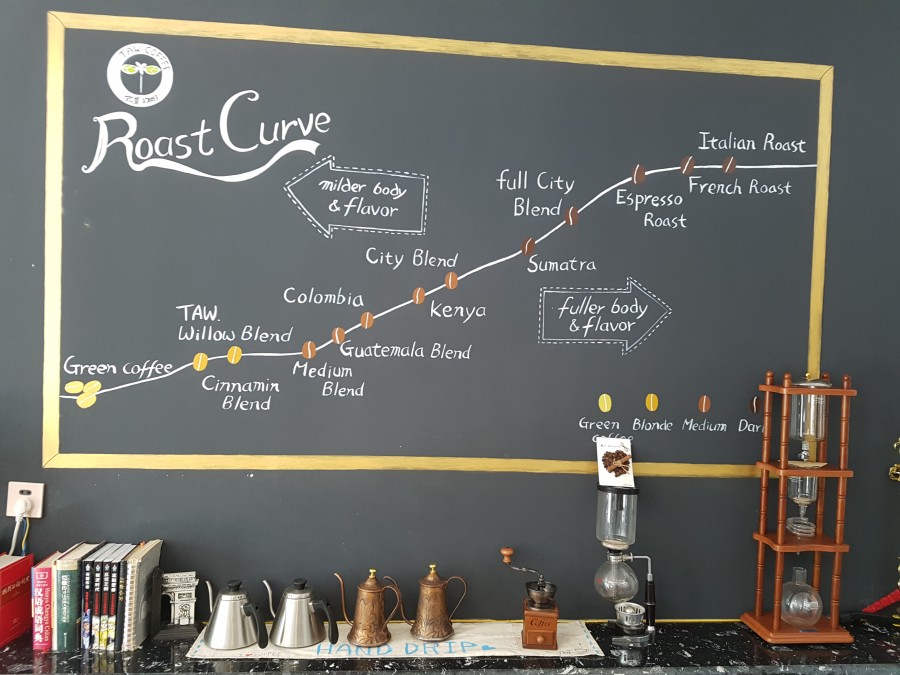 TAW COFFEE
Roast Curve
milder body
& flavor
Italian Roast
French Roast
full City
Blend
Espresso
Roast
City Blend
Sumatra
Colombia
Kenya
fuller body
& flavor
TAW.
Willow Blend
Guatemala Blend
Green coffee
Medium
Blend
Cinnamin
Blend
Green
coffee
Blonde
Medium
Dar
汉语成语词典
HAND DRIP